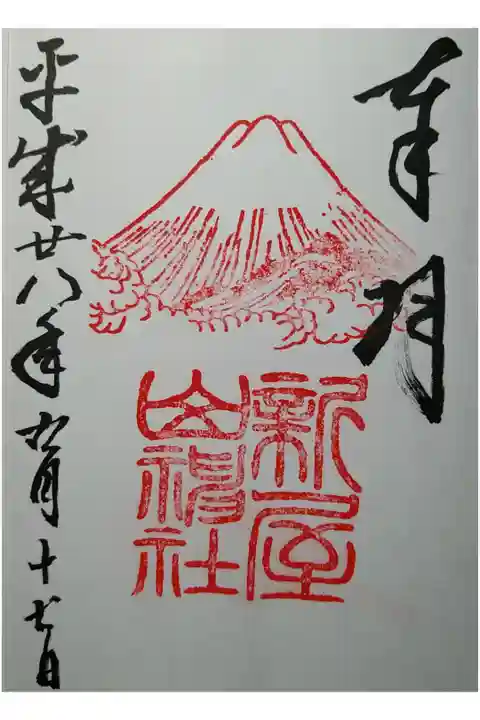 奉拝
新屋
山神社
平成廿八年九月十七日